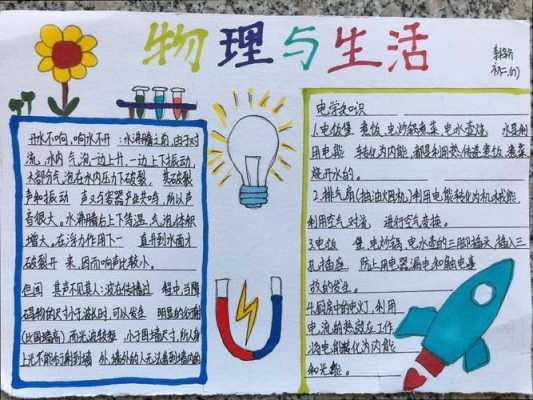 物理与生活
初二(1)
开水不响,响水不开:水沸腾之前,由于对
流,水内气泡一边上升,一边上下振动,
大部分气泡在水内压力下破裂,其破裂
声和振动声又与容器产生共鸣,所以声
音很大。水沸腾后上下等温,气泡体积
增大,在浮力作用下一直升到水面才
破裂开来,因而响声比较小。
但闻其声不见其人:波在传播过程中,当障
碍物的尺寸小于波长时,可以发生明显的衍射
(比围墙高)而光波较短,小于围墙尺寸,所以人身
上光不能衍射到墙外,墙外的人无法看到墙内的
电学知识
1.电饭煲煮饭,电炒锅煮菜,电水壶烧水是利
用电能转化为内能,都是利用热传递煮饭,煮菜,
烧开水的。
2.排气扇(抽油烟机)利用电能转化为机械能,
利用空气对流进行空气变换。
3.电饭煲,电炒锅,电水壶的三脚插头,插入三
孔插座,防止用电器漏电和触电事
故的发生。
4.厨房中的电灯,利用
电流的热效应工作,
将电能转化为内能
和光能。